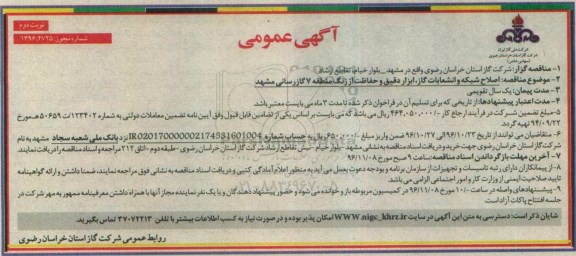 نوبت دوم
شماره مجوز: ۱۳۹۶.۴۷۲۵
آگهی عمومی
شرکت ملی گاز ایران
شرکت گاز استان خراسان رضوی
(سهامی خاص)
۱- مناقصه گزار: شرکت گاز استان خراسان رضوی واقع در مشهد_ بلوار خیام تقاطع ارشاد
۲- موضوع مناقصه: اصلاح شبکه و انشعابات گاز، ابزار دقیق و حفاظت از زنگ منطقه ۷ گازرسانی مشهد
۳- مدت پیمان: یک سال تقویمی
۴- مدت اعتبار پیشنهادها: از تاریخی که برای تسلیم آن در فراخوان ذکر شده تا مدت ۳ ماه می بایست معتبر باشد.
۵- مبلغ تضمین شرکت در فرآیند ارجاع کار ۴۶۴,۰۵۰,۰۰۰/- ریال می باشد که می بایست بر اساس یکی از تضامین قابل قبول وفق آیین نامه تضمین معاملات دولتی به شماره ۱۲۳۴۰۲/ت ۵۰۶۵۹ هـ مورخ ۹۴/۰۹/۲۲ تهیه گردد.
۶- متقاضیان می توانند از تاریخ ۹۶/۱۰/۲۳ الی ۹۶/۱۰/۲۷ ضمن واریز مبلغ ۶۵۰,۰۰۰/- ریال به حساب شماره IR020170000002174531601004 نزد بانک ملی شعبه سجاد مشهد به نام شرکت گاز استان خراسان رضوی جهت خرید و دریافت اسناد مناقصه به نشانی مشهد_ بلوار خیام_ نبش تقاطع ارشاد_ شرکت گاز استان خراسان رضوی_طبقه دوم _اتاق ۲۱۲ مراجعه و اسناد مناقصه را دریافت نمایند.
۷- آخرین مهلت بازگرداندن اسناد مناقصه: ساعت ۹ صبح مورخ ۹۶/۱۱/۰۸
۸- از پیمانکاران دارای رتبه تاسیسات و تجهیزات از سازمان برنامه و بودجه دعوت بعمل می آید به منظور اعلام آمادگی کتبی و دریافت اسناد مناقصه به نشانی فوق مراجعه نمایند، ضمنا داشتن و ارائه گواهینامه تایید صلاحیت ایمنی از وزارت کار و امور اجتماعی الزامی می باشد.
۹- پیشنهادهای واصله در ساعت ۱۰/۰۰ مورخ ۹۶/۱۱/۰۸ در کمیسیون مربوطه باز و خوانده می شود و حضور پیشنهاد دهندگان و یا یک نفر نماینده مجاز آنها با همراه داشتن معرفینامه ممهور به مهر شرکت در جلسه افتتاح پاکات آزاد است.
شایان ذکر است: دسترسی به متن این آگهی در سایت WWW.nigc_khrz.ir امکان پذیر بوده و در صورت نیاز به کسب اطلاعات بیشتر با تلفن ۳۷۰۷۲۲۱۳ تماس بگیرید.
روابط عمومی شرکت گاز استان خراسان رضوی